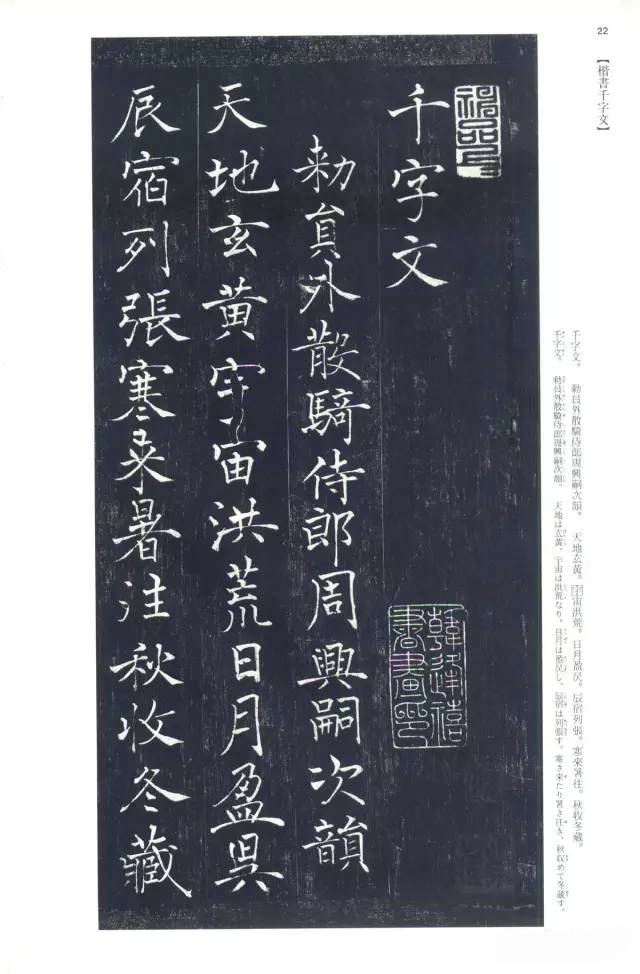 22
【楷書千字文】
千字文。　勅員外散騎侍郎周興嗣次韻。　天地玄黃。宇宙洪荒。日月盈昃。辰宿列張。寒來暑往。秋收冬藏。
千字文。　勅員外散騎侍郎周興嗣次韻。　天地は玄黄、宇宙は洪荒なり。日月は盈昃し、辰宿は列張す。寒さ来たり暑さ往き、秋収めて冬蔵す。
千字文
韓逢禧書畫印
勑員外散騎侍郎周興嗣次韻
天地玄黃宇宙洪荒日月盈昃
辰宿列張寒来暑往秋收冬藏